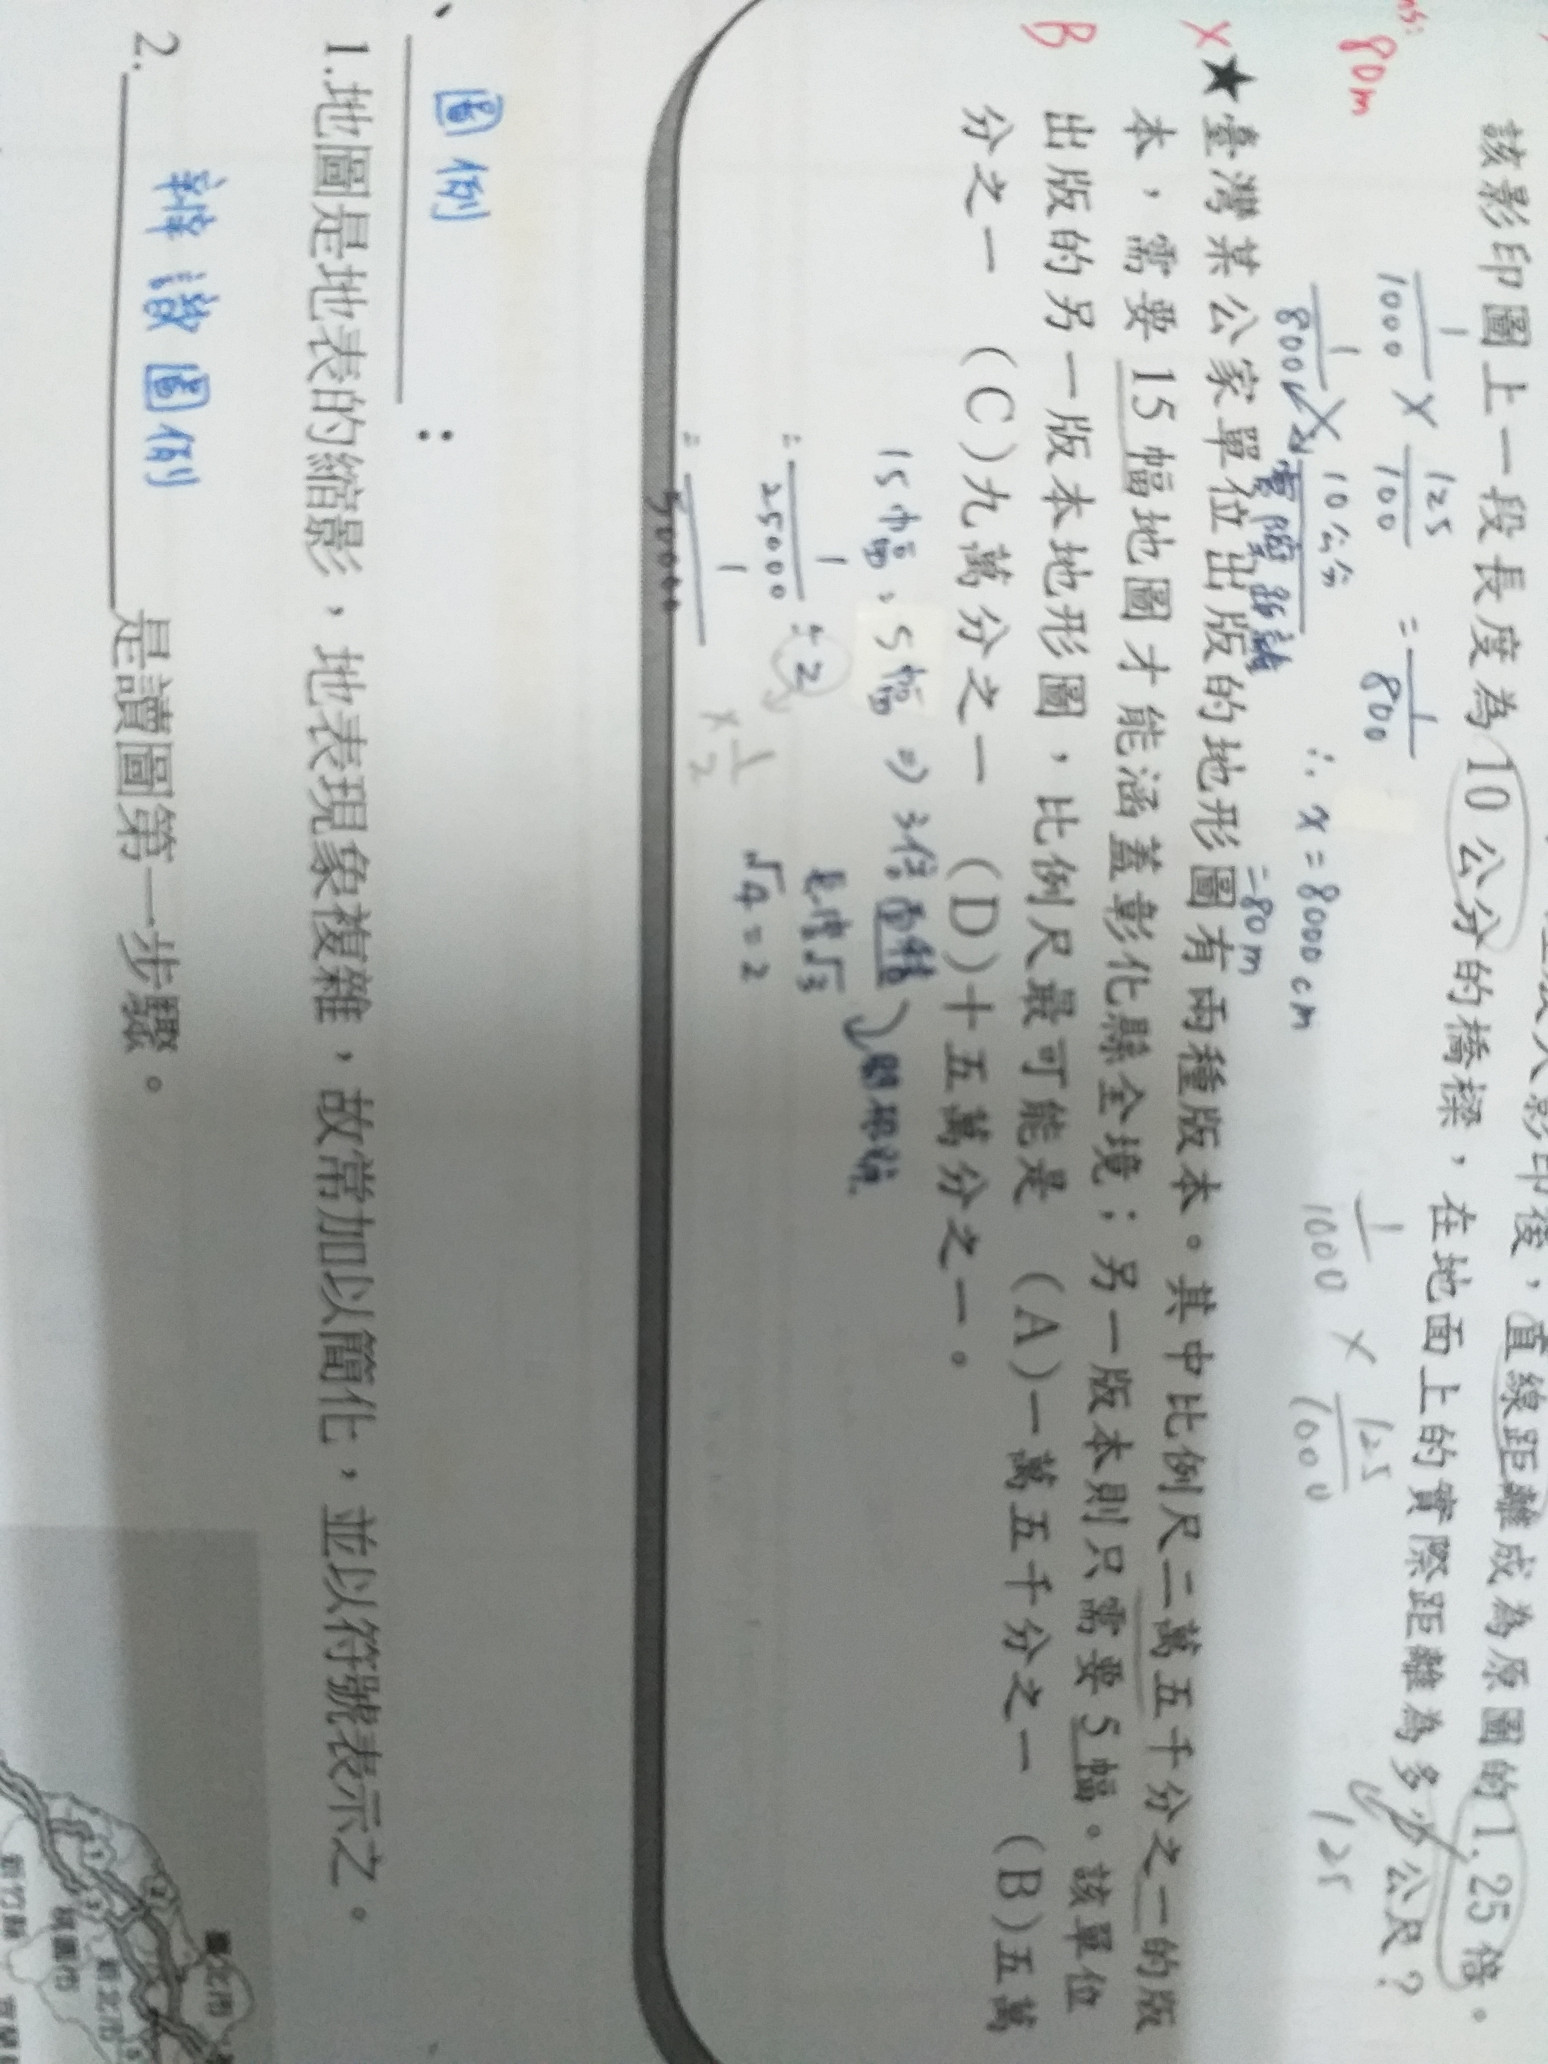 該影印圖上一段長度為10公分的橋樑，在地面上的實際距離為多少公尺？
影印後，直線距離成為原圖的1.25倍。
80m
1/1000 × 125/100 = 1/800
1/800 × 10公分
∴ x = 8000cm
=80m
1/1000 × 125/1000
125
×★臺灣某公家單位出版的地形圖有兩種版本。其中比例尺二萬五千分之一的版
本，需要15幅地圖才能涵蓋彰化縣全境；另一版本則只需要5幅。該單位
B 出版的另一版本地形圖，比例尺最可能是 (A)一萬五千分之一 (B)五萬
分之一 (C)九萬分之一 (D)十五萬分之一。
15幅：5幅 ⇒ 3倍面積
長度√3
√4=2
= 1/25000 ÷ 2
× 1/2
= 1/50000
圖例：
1.地圖是地表的縮影，地表現象複雜，故常加以簡化，並以符號表示之。
2.辨識圖例是讀圖第一步驟。
臺北市
新北市
桃園市
新竹縣